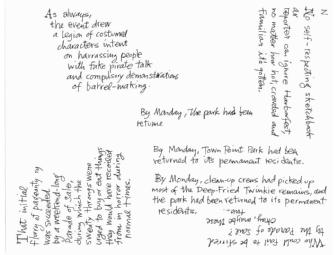 As always,
the event drew
a legion of costumed
characters intent
on harrassing people
with fake pirate talk
and compulsory demonstrations
of barrel-making.
No self-respecting sketchbook
reporter can ignore Harborfest,
no matter how hot, crowded and
familiar it's gotten.
By Monday, The park had been
returne
By Monday, Town Point Park had been
returned to its permanent residents.
By Monday, clean-up crews had picked up
most of the Deep-Fried Twinkie remains, and
the park had been returned to its permanent
residents.
That initial
flurry of pageantry
was succeeded
by a weekend-long
Parade of Sails,
during which the
sweaty throngs were
urged to buy or eat things
they would have recoiled
from in horror during
normal times.
Who could fail to be stirred
by the Parade of Sail?
Okay, maybe these